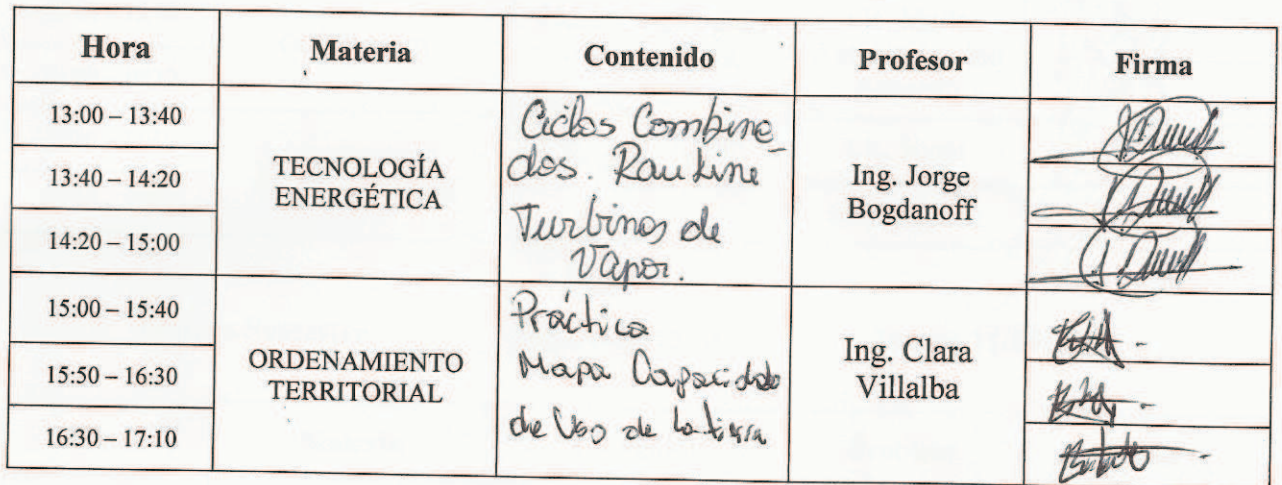 Hora Materia Contenido Profesor Firma
13:00 – 13:40
13:40 – 14:20
14:20 – 15:00
TECNOLOGÍA
ENERGÉTICA
Ciclos Combina
dos. Rankine
Turbinas de
Vapor.
Ing. Jorge
Bogdanoff
15:00 – 15:40
15:50 – 16:30
16:30 – 17:10
ORDENAMIENTO
TERRITORIAL
Práctica
Mapa Capacidad
de Uso de la tierra
Ing. Clara
Villalba